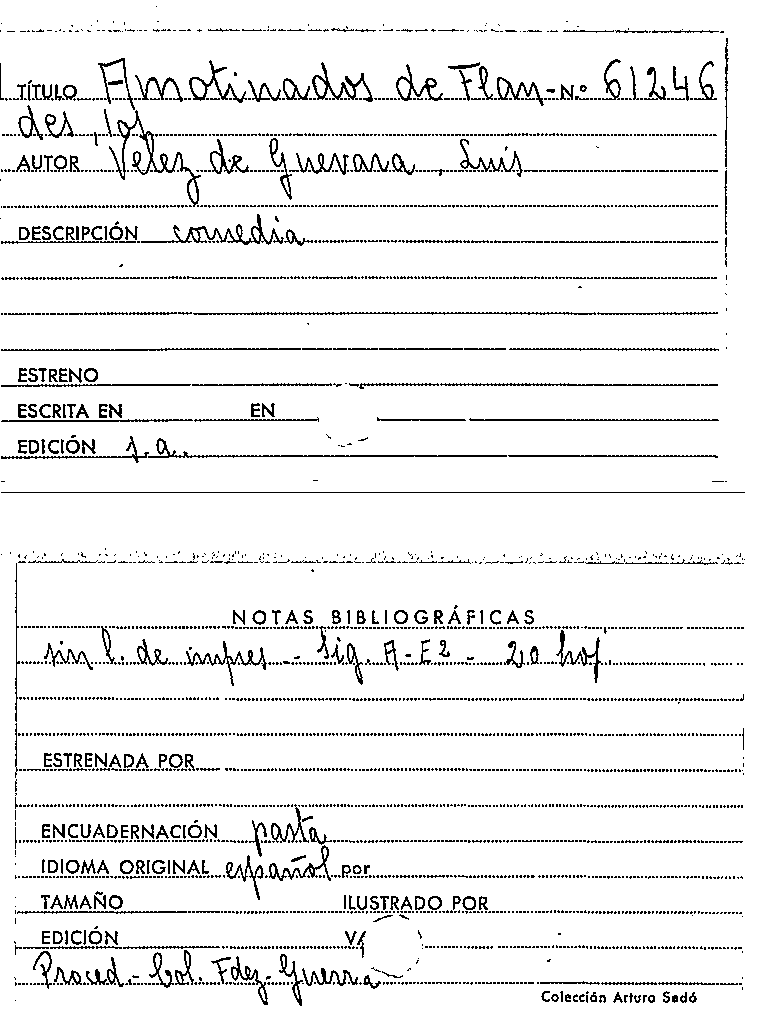 TÍTULO Amotinados de Flan- N.º 61246
des, los
AUTOR Vélez de Guevara, Luis
DESCRIPCIÓN comedia
ESTRENO
ESCRITA EN EN
EDICIÓN s.a.
NOTAS BIBLIOGRÁFICAS
sin l. de impres - Sig. A-E2 - 20 hoj.
ESTRENADA POR
ENCUADERNACIÓN pasta
IDIOMA ORIGINAL español por
TAMAÑO ILUSTRADO POR
EDICIÓN V
Proced.- Col. Fdez-Guerra
Colección Arturo Sedó